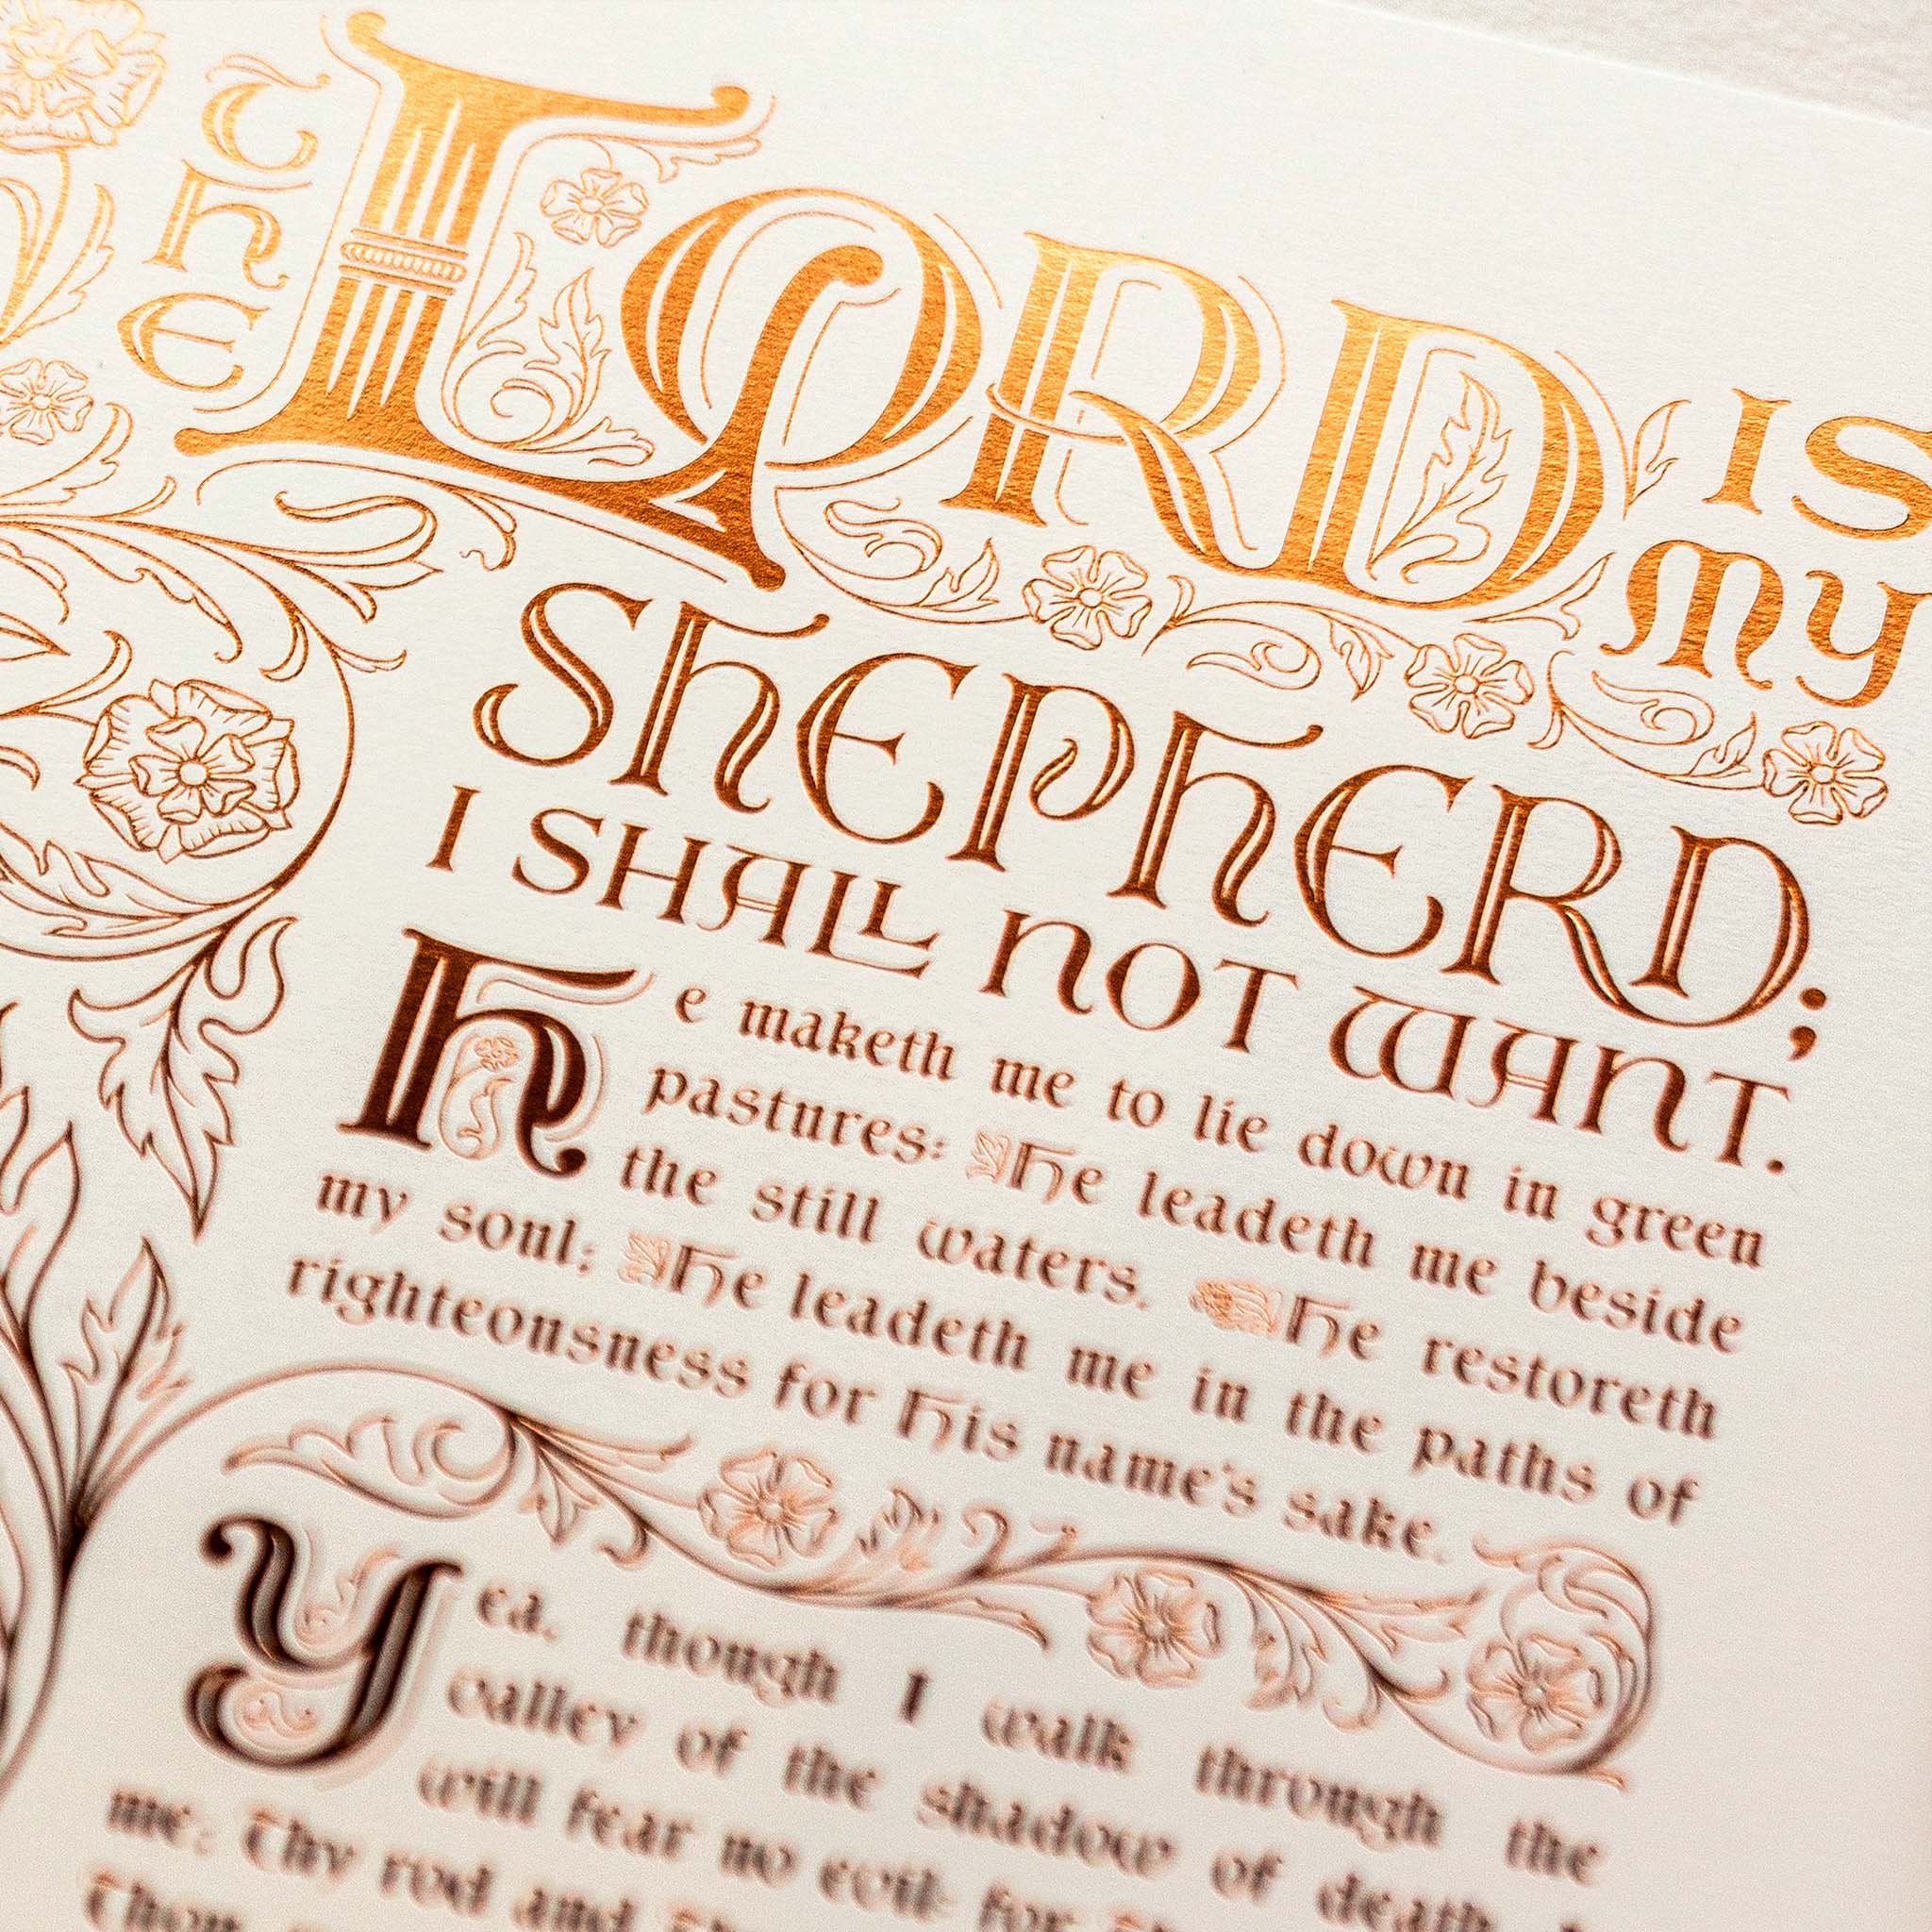 The LORD is
my
Shepherd;
I SHALL NOT WANT.
He maketh me to lie down in green
pastures: He leadeth me beside
the still waters. He restoreth
my soul: He leadeth me in the paths of
righteousness for His name's sake.
Yea, though I walk through the
valley of the shadow of death, I
will fear no evil: for
me: Thy rod and
Thou